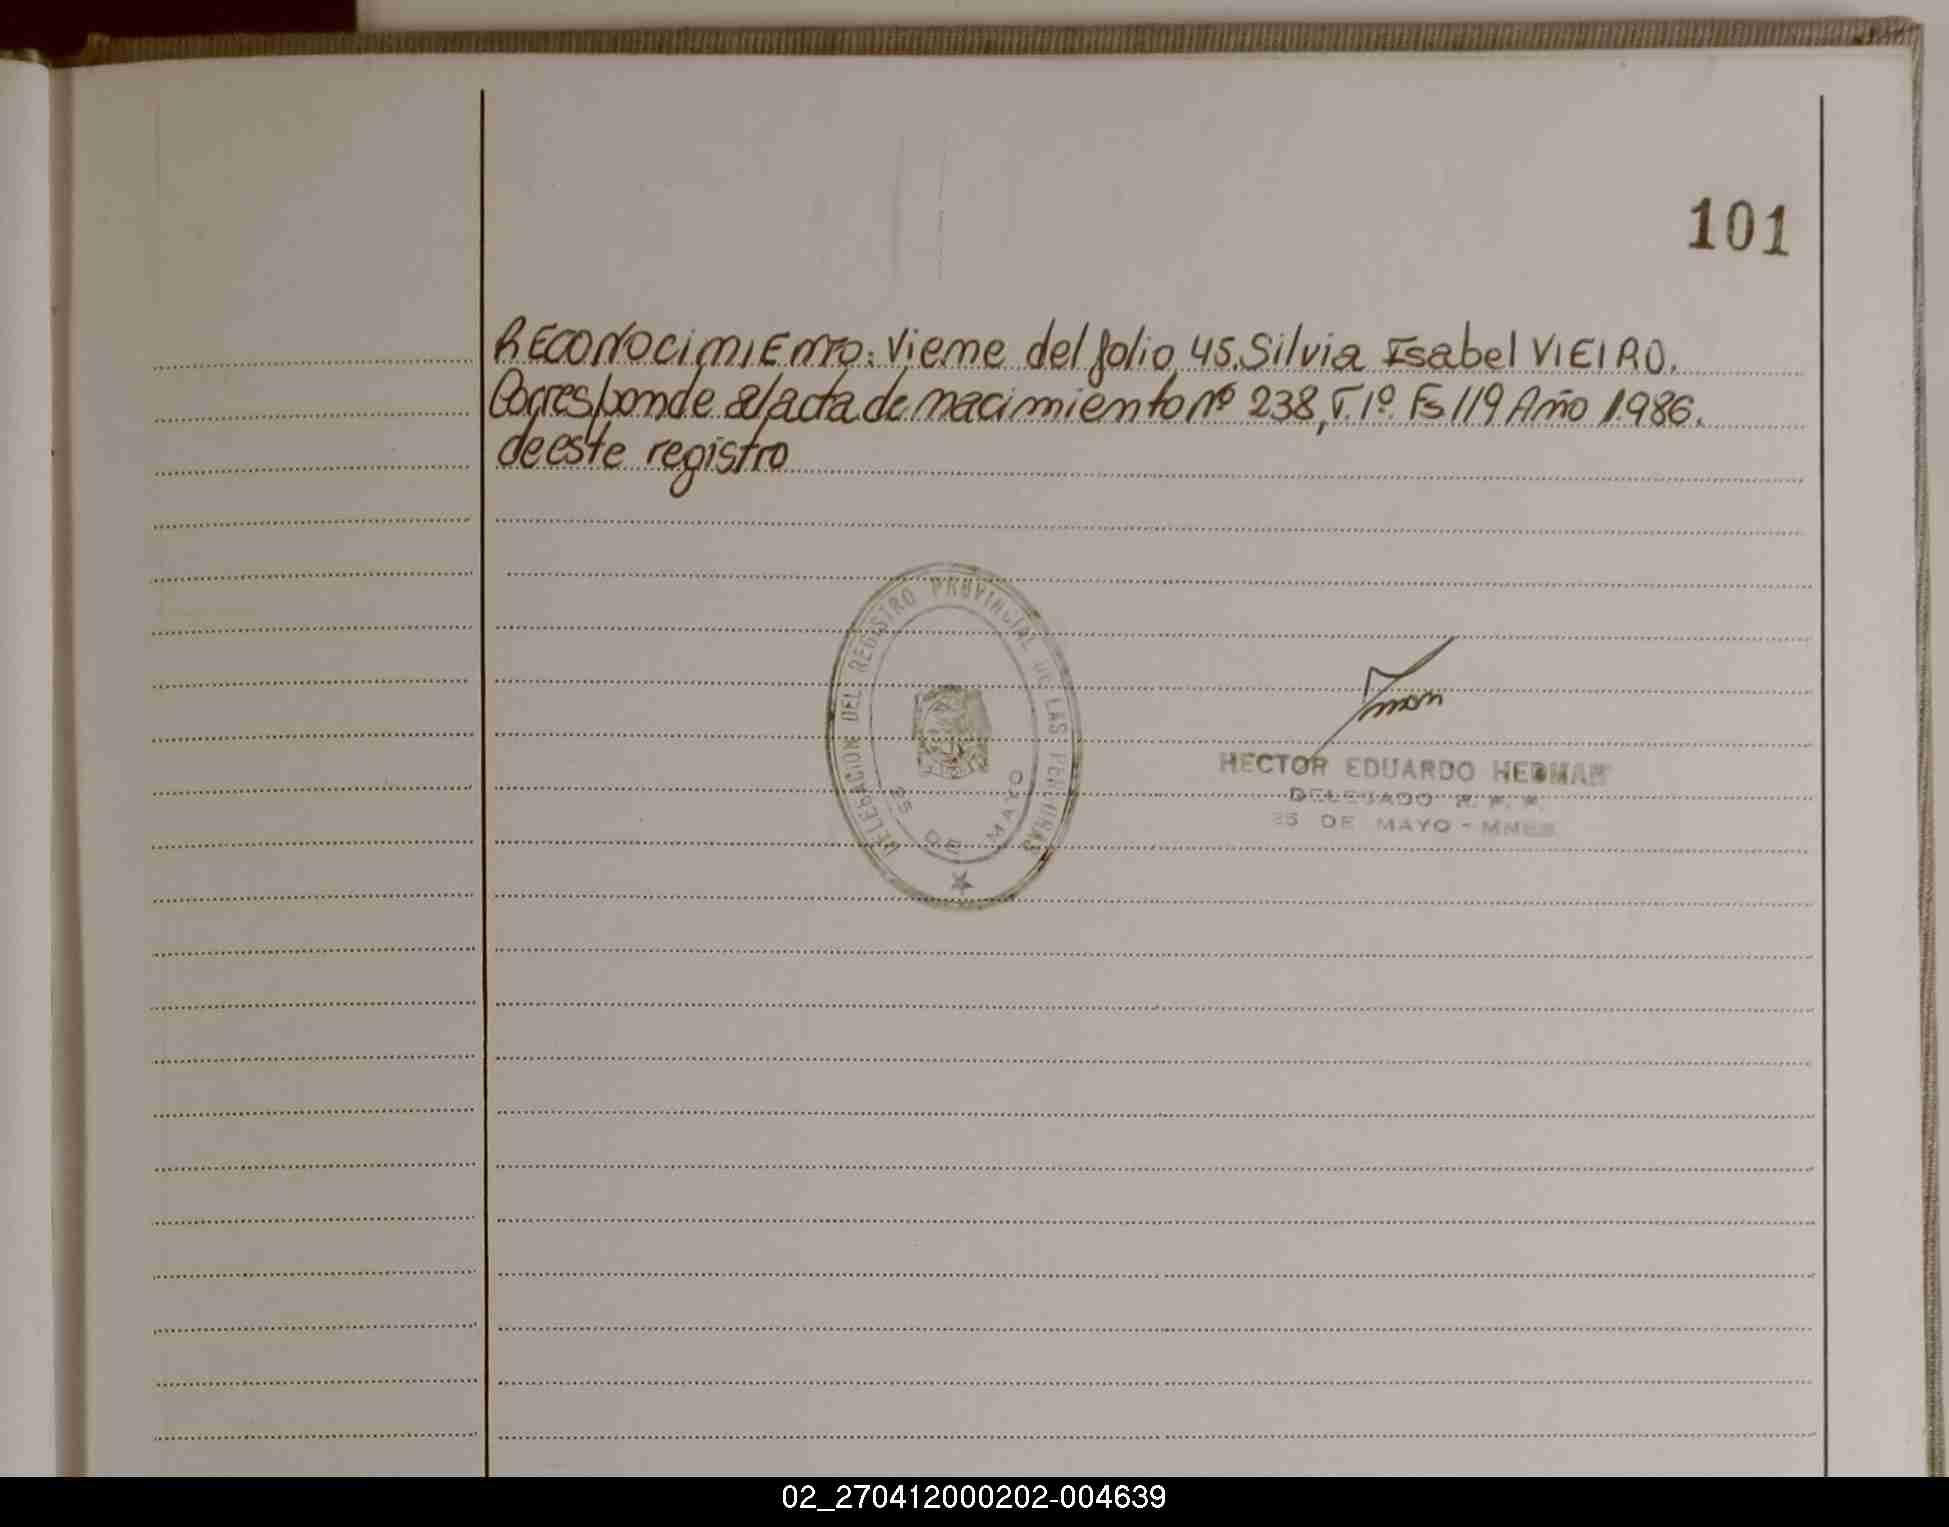 101
RECONOCIMIENTO: Viene del folio 45. Silvia Isabel VIEIRO.
Corresponde al acta de nacimiento nº 238, T. 1º. Fs 119 Año 1.986.
de este registro
DELEGACION DEL REGISTRO PROVINCIAL DE LAS PERSONAS
25 DE MAYO
HECTOR EDUARDO HEDMAN
DELEGADO R. P. P.
25 DE MAYO - MNES
02_270412000202-004639